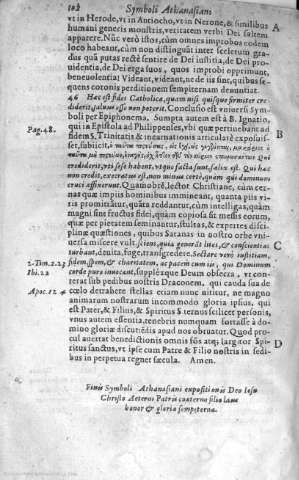 102 Symboli Athanasiani
ut in Herode, ut in Antiocho, ut in Nerone, & similibus A
humani generis monstris, veritatem verbi Dei saltem
apparere. Nûc verò istos, cùm omnes improbos eodem
loco habeant, cùm non distinguãt inter scelerum gra-
dus quâ putas rectè sentire de Dei iustitia, de Dei pro-
uidentia, de Dei erga suos, quos improbi opprimunt,
beneuolentia? Videant, videant, ne de iis sint, quibus se-
quens cotonis perditionem sempiternam denuntiat.
46 Hæc est fides Catholica, quam nisi quisque firmiter cre-
diderit, saluus esse non poterit. Conclusio est uniuersi Sym-
boli per Epiphonema. Sumpta autem est à B. Ignatio,
Pag. 48. qui in Epistola ad Philippenses, ubi quæ pertinebant ad B
fidem S. Trinitatis & incarnationis articulatè exposuis-
set, subiicit,
Qui
crediderit, vti sese habent, vt gesta sunt, saluus est. Qui hæc
non credit, execratus est, non minùs certè, quàm qui dominum
cruci affixerunt. Quamobrẽ, lector Christiane, cùm cer-
nas quæ impiis hominibus immineant, quanta piis vi-
ris promittãtur, quãta reddantur, cùm intelligas, quàm
magni sint fructus fidei, quàm copiosa sit messis eorum,
quæ per pietatem seminantur, stultas, & expertes disci-
plinæ quæstiones, quibus Satanas in nostro orbe vni-
uersa miscere vult, sciens, quia generãt lites, & conscientias C
turbant, deuita, fuge, transgredere. Sectare verò iustitiam,
2. Tim. 2. 23 fidem, spem, & charitatem, ac pacem cum iis, qui Dominum
Ibi. 22 corde puro inuocant, supplexque Deum obsecra, vt con-
terat sub pedibus nostris Draconem, qui cauda sua de
Apoc. 12. 4 cœlo detrahere stellas etiam nunc nititur, ne magno
animarum nostrarum incommodo gloria ipsius, qui
est Pater, & Filius, & Spiritus S. ternus scilicet personis,
vnus autem essentia, tenebris nonquam fortasse à do-
mino gloriæ discutiẽdis apud nos obruatur. Quod pro-
cul auertat benedictionis omnis fõs atq; largitor Spi- D
ritus sanctus, vt ipse cum Patre & Filio nostris in sedi-
bus in perpetua regnet sæcula. Amen.
Finis Symboli Athanasiani expositionis Deo Iesu
Christo Aeterni Patris coæterno filio laus
honor & gloria sempiterna.